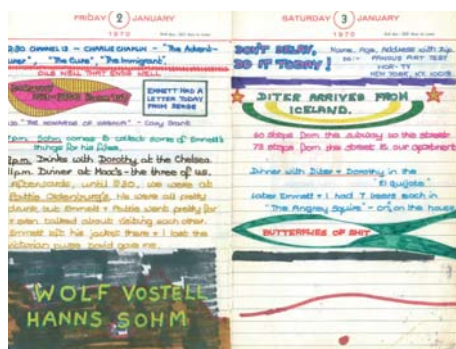 FRIDAY 2 JANUARY
1970
2:30 CHANNEL 13 - CHARLIE CHAPLIN - "The Advent-
urer", "The Cure", "The Immigrant".
OILS WELL THAT ENDS WELL
EMMETT HAD A
LETTER TODAY
FROM
Cary Grant
7pm. John comes to collect some of Emmett's
things for his files.
8pm. Drinks with Dorothy at the Chelsea.
11pm. Dinner at Max's - the three of us.
Afterwards, until 5:30, we were at
Pattie Oldenburg's. We were all pretty
drunk but Emmett + Pattie went pretty far
+ even talked about visiting each other.
Emmett left his jacket there + I lost the
Victorian purse David gave me.
WOLF VOSTELL
HANNS SOHM
SATURDAY 3 JANUARY
1970
DON'T DELAY,
DO IT TODAY!
Name, Age, Address with Zip
to:- FAMOUS ART TEST
WOR-TV
NEW YORK, NY 10018
DITER ARRIVES FROM
ICELAND.
60 steps from the subway to the street
73 steps from the street to our apartment
Dinner with Diter + Dorothy in the
"El Quijote"
later Emmett + I had 7 beers each in
"The Angrey Squire" - on the house
BUTTERFLIES OF SHIT